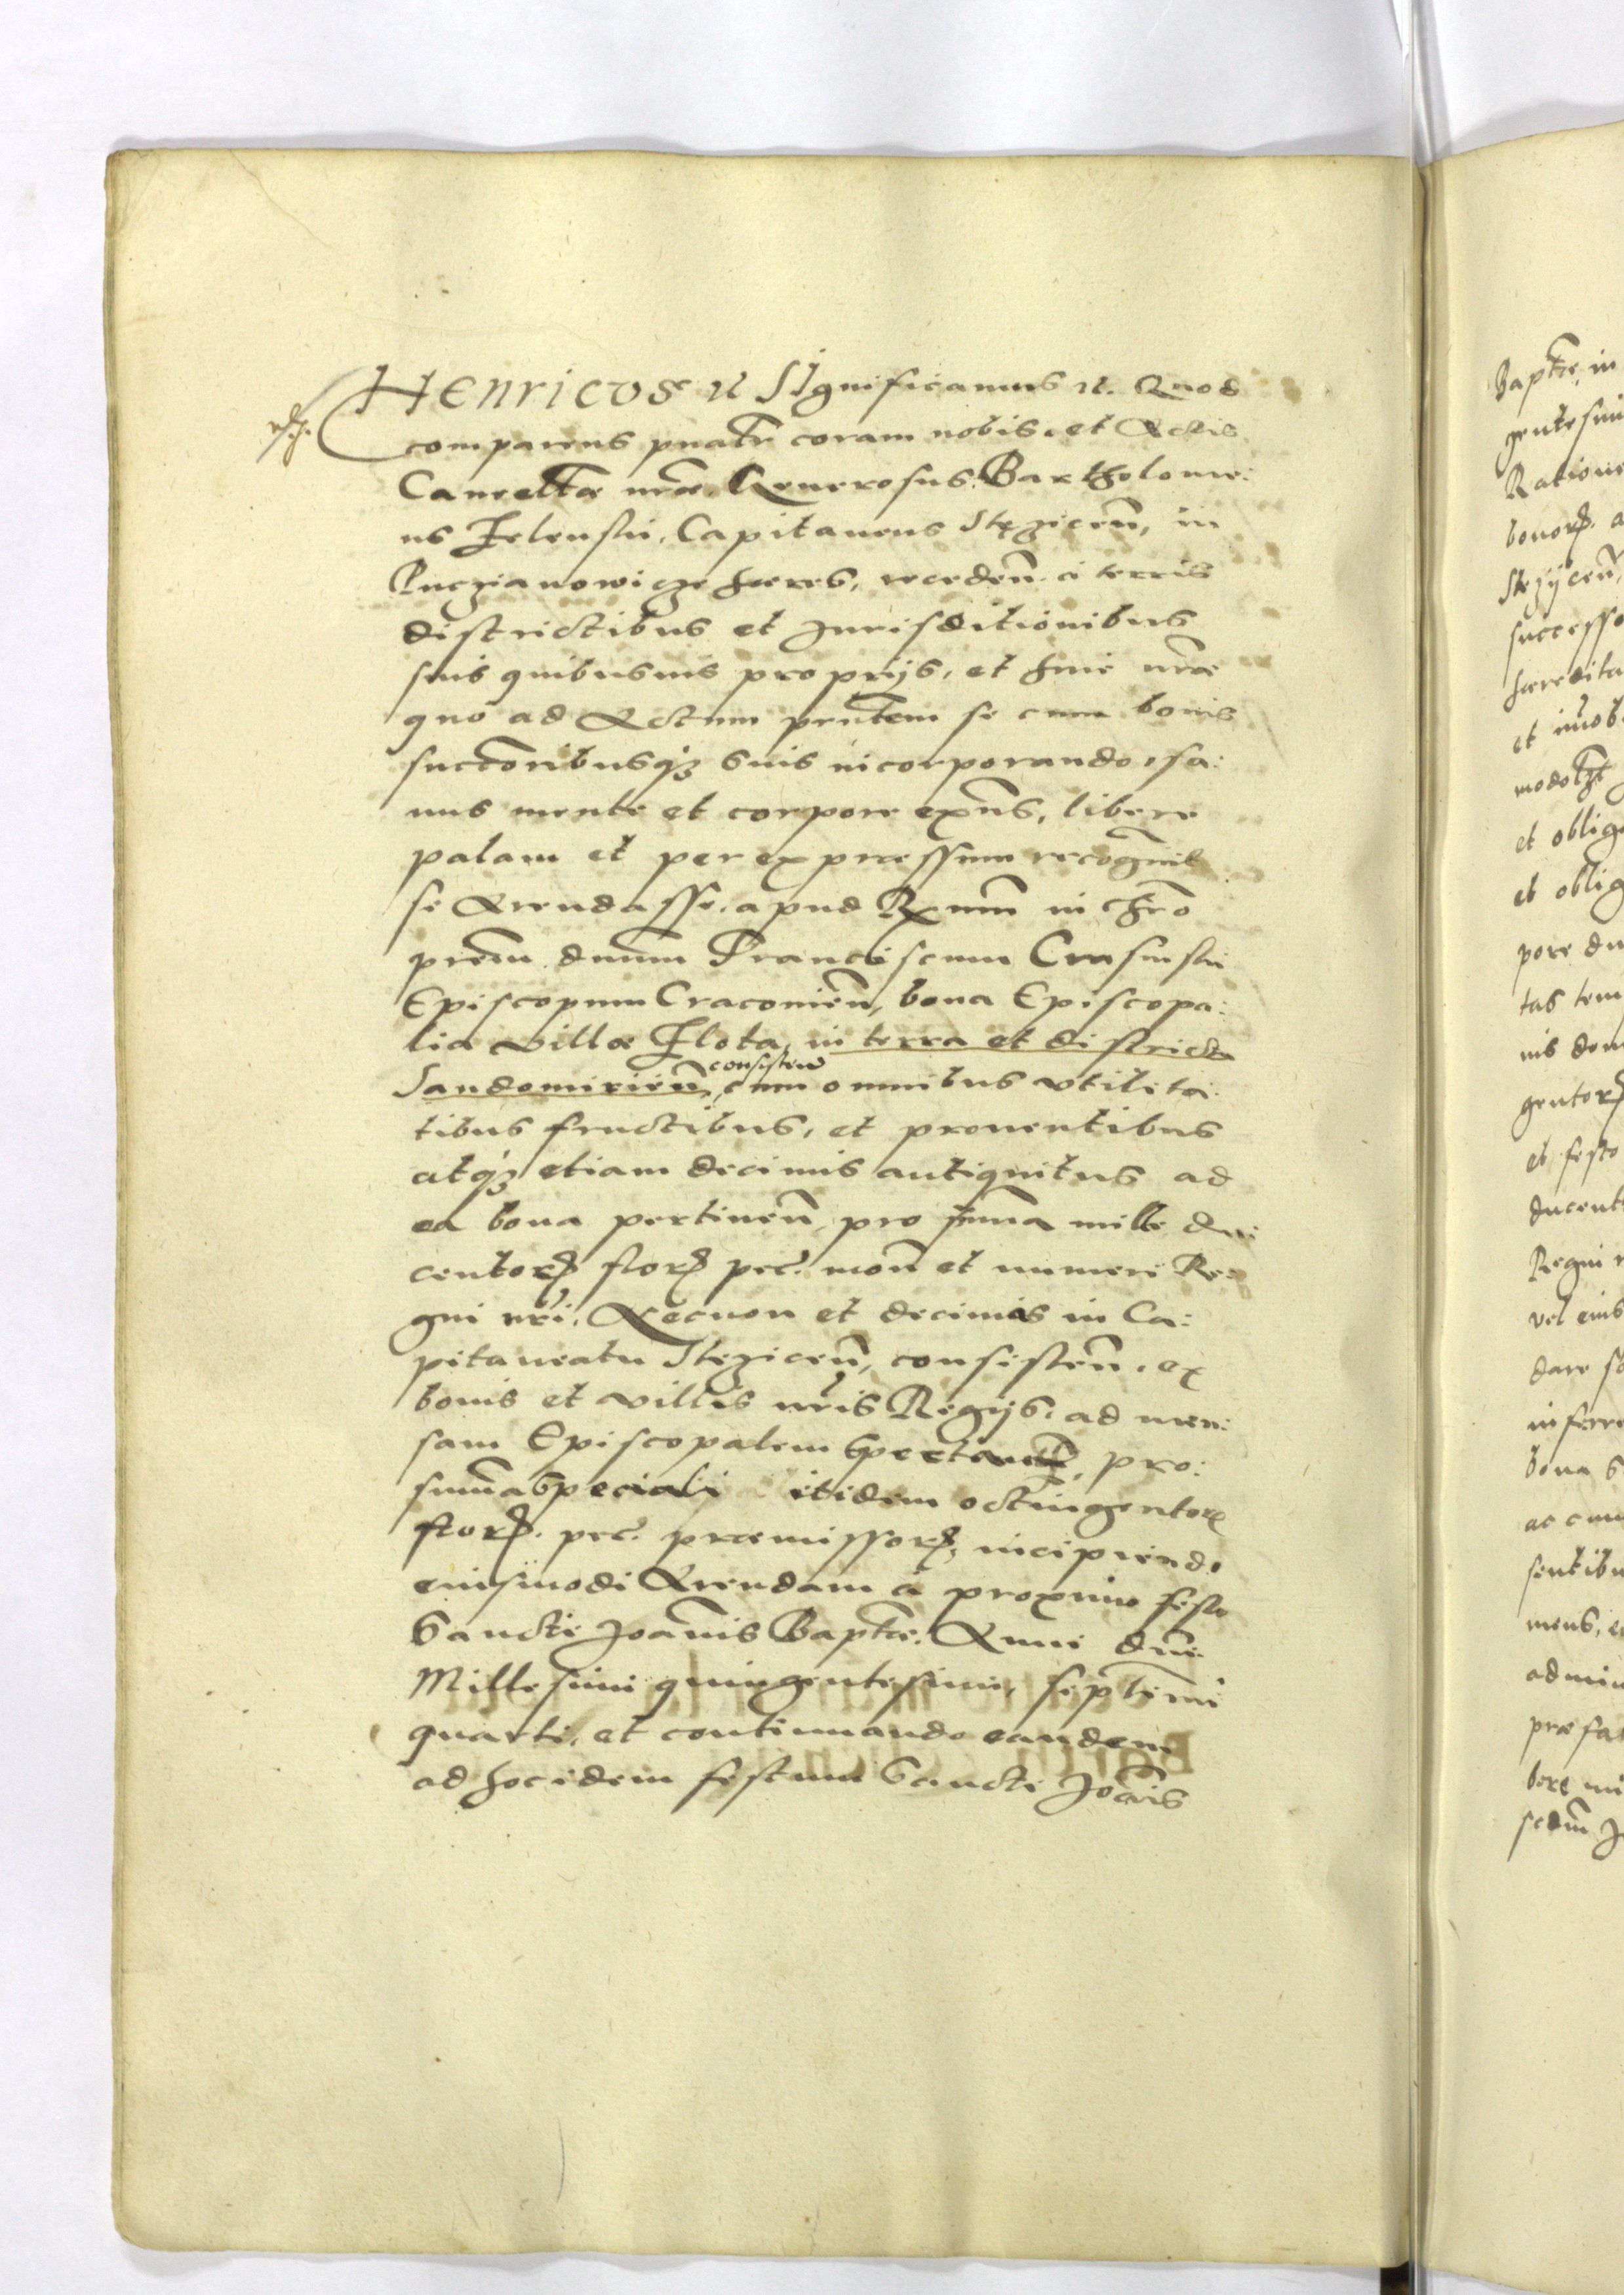 Henricus etc Significamus etc. Quod
comparens pnãtr coram nobis, et Actis
Cancellãe nr̃ae, Generosus Bartholome:
us Zelenski, Capitaneus Stęzicen̄, in
haeres, receden̄ a terris
districtibus et Jurisditionibus
suis quibusuis proprijs, et huic nr̃ae
quo ad Actum pn̄tem se cum bonis
succoribusq; suis incorporando, sa:
nus mente et corpore exn̄s, libere
palam et per expressum recognit
se Arendasse, apud Rx̄mum in Chr̃o
prēm dnūm Franciscum Crasinski
Episcopum Cracouien̄, bona Episcopa:
lia villae Zlota, in terra et districtu
consisten̄
Sandomirien̄, cum omnibus vtilita:
tibus fructibus, et prouentibus
atq; etiam decimis antiquitus ad
ea bona pertinen̄, pro summa mille du:
centor̃ flor̃ pec. mon̄ et numeri Re:
gni nr̃i. Necnon et decimis in Ca:
pitaneatu Stęzicen̄, consisten̄, ex
bonis et villis nr̃is Regijs, ad men:
sam Episcopalem spectan̄, pro:
summa speciali itidem octingentor̃
flor̃. pec. praemissor̃, incipiendo
eiusmodi Arendam à proximo festo
Sancti Joānis Bapt̃ae. Anni dn̄i
Millesimi quingentesimi, septm̄i
quarti, et continuando eandem
ad hoc idem festum Sancti Joānis
Bapt̃ae, in
Ratione
bonor̃. a
Stęzijcen̄,
successo
haeredita
et obliga
et oblig
pore du
tas tem
gentor̃
et festo
ducent
Regni n
vel eius
dare so
inferre
bona s
ac cum
sentibu
praefa